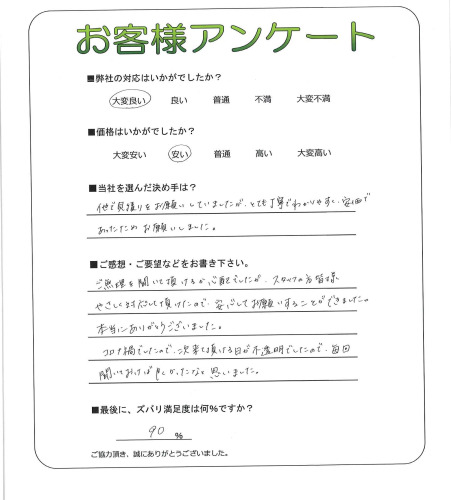 お客様アンケート
■弊社の対応はいかがでしたか？
大変良い 良い 普通 不満 大変不満
■価格はいかがでしたか？
大変安い 安い 普通 高い 大変高い
■当社を選んだ決め手は？
他で見積りをお願いしていましたが、とても丁寧でわかりやすく、安価で
あったためお願いしました。
■ご感想・ご要望などをお書き下さい。
ご無理を聞いて頂けるか心配でしたが、スタッフの方皆様
やさしく対応して頂けたので、安心してお願いすることができました。
本当にありがとうございました。
コロナ禍でしたので、次来て頂ける日が不透明でしたので、毎回
聞いておけば良かったなと思いました。
■最後に、ズバリ満足度は何％ですか？
90 ％
ご協力頂き、誠にありがとうございました。